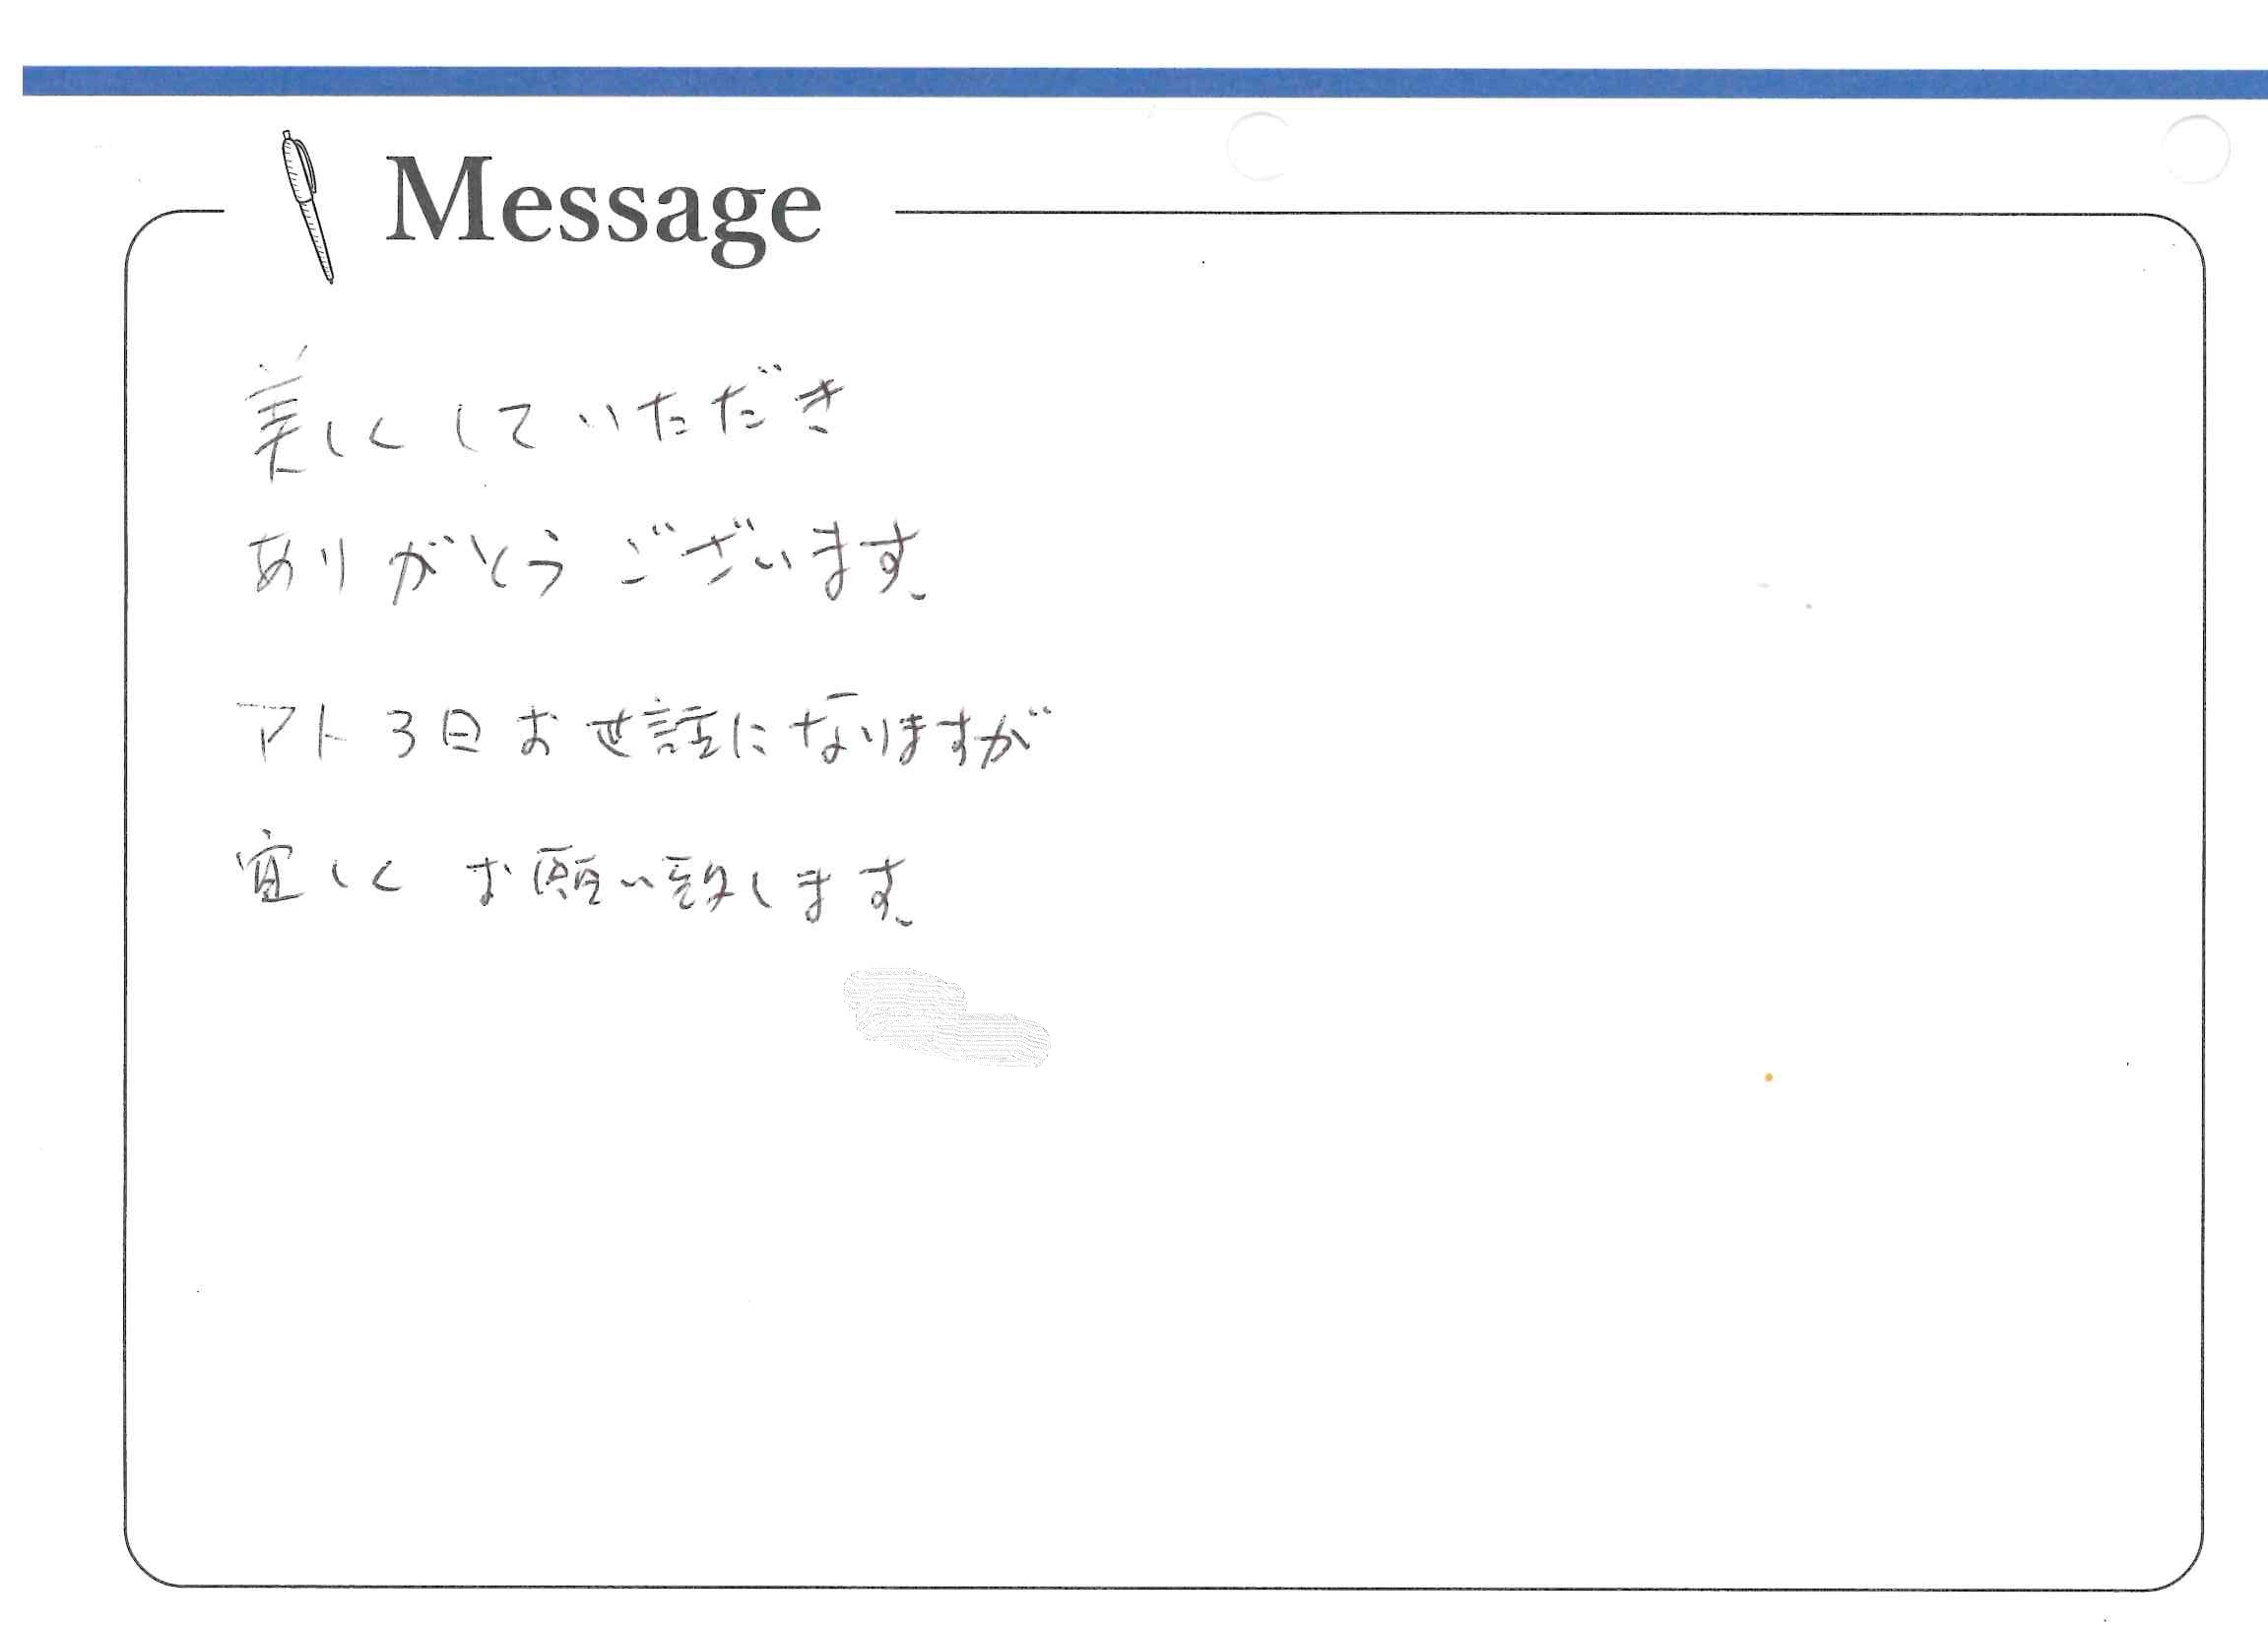 Message
美しくしていただき
ありがとうございます。
アト3日お世話になりますが
宜しくお願い致します。